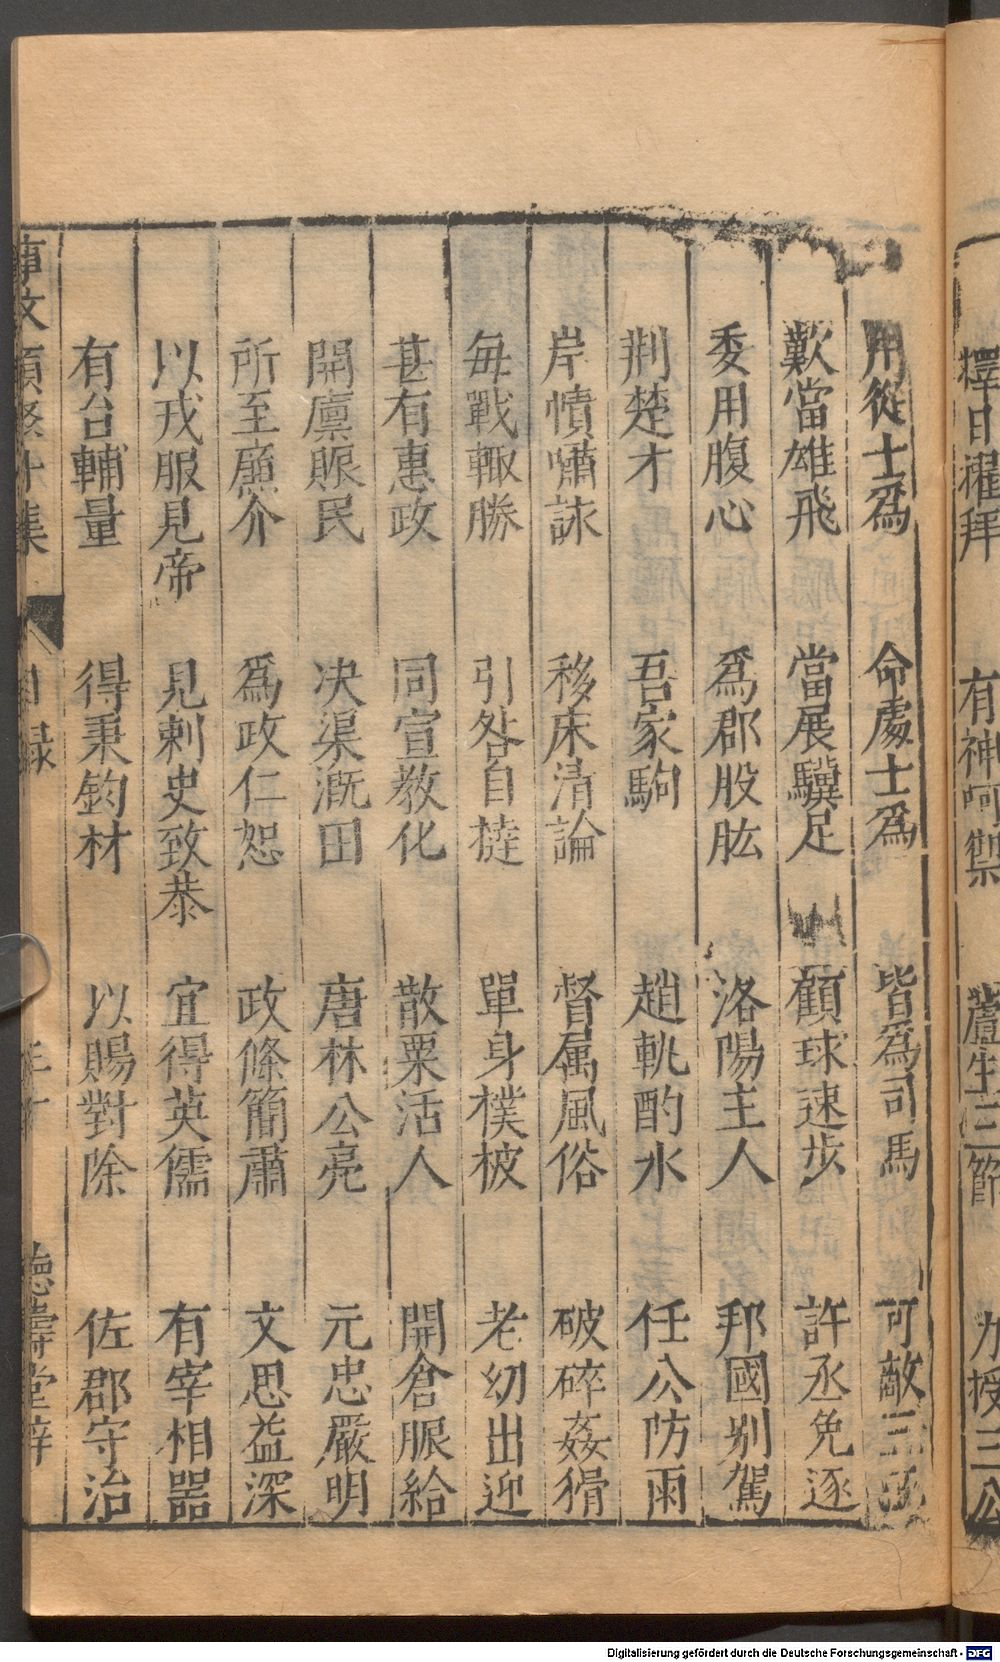 釋日濯拜　有神呵禦　蘆生三節　力授三公
用從士爲　命處士爲　皆爲司馬　可敵三
歎當雄飛　當展驥足　顧球速步　許丞免逐
委用腹心　爲郡股肱　洛陽主人　邦國别駕
荆楚才　吾家駒　趙軌酌水　任公防雨
岸幘嘯詠　移床清論　督属風俗　破碎姦猾
每戰輙勝　引咎自撻　單身樸被　老幼出迎
甚有惠政　同宣教化　散粟活人　開倉賑給
開廪賑民　决渠漑田　唐林公亮　元忠嚴明
所至廉介　爲政仁恕　政條簡肅　文思益深
以戎服見帝　見剌史致恭　宜得英儒　有宰相器
有台輔量　得秉鈞材　以賜對除　佐郡守治
事文類聚外集　目録　德壽堂梓
Digitalisierung gefördert durch die Deutsche Forschungsgemeinschaft - DFG